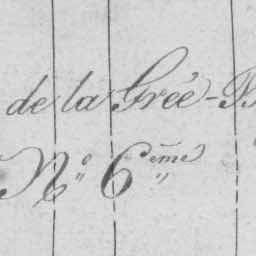 de la Grée-
N.º 6.ème